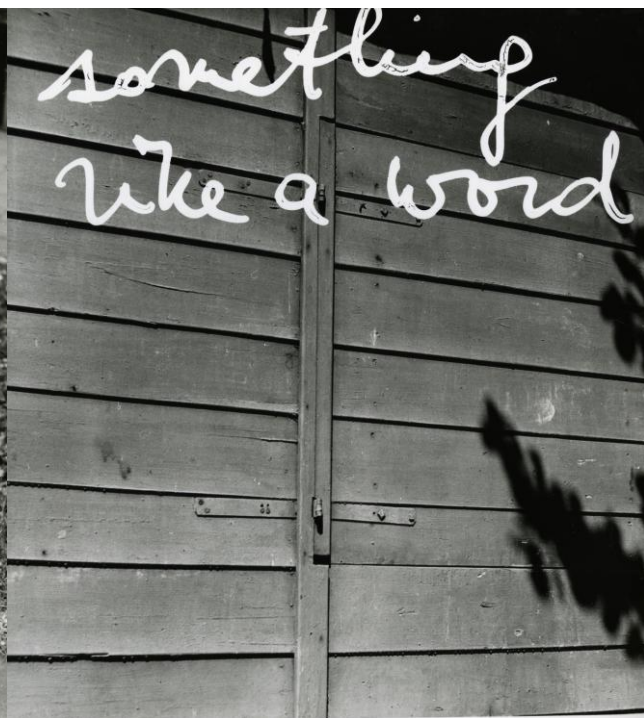 something
like a word